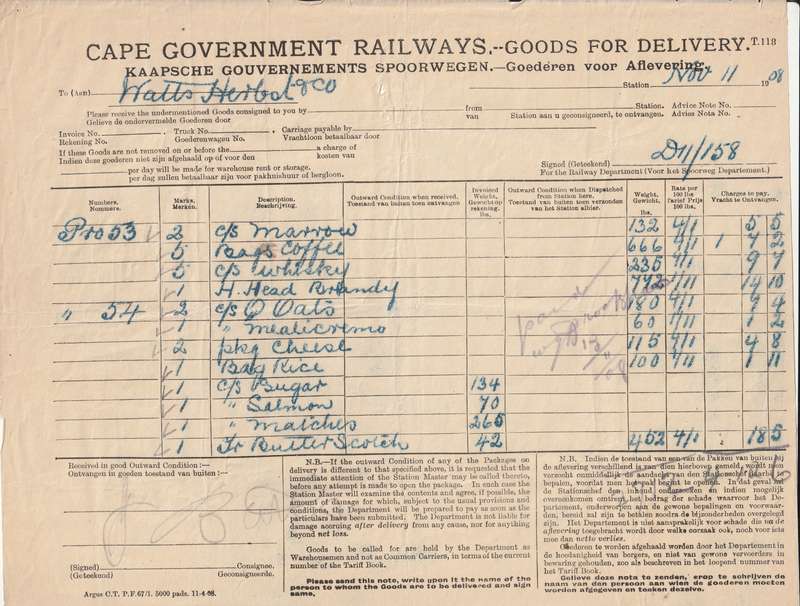 CAPE GOVERNMENT RAILWAYS.--GOODS FOR DELIVERY. T.118
KAAPSCHE GOUVERNEMENTS SPOORWEGEN.—Goederen voor Aflevering.
To (Aan) Watts Herbol & Co
Station, Nov 11 1908
Please receive the undermentioned Goods consigned to you by from Station. Advice Note No.
Gelieve de ondervermelde Goederen door van Station aan u geconsigneerd, te ontvangen. Advies Nota No.
Invoice No. Truck No. Carriage payable by
Rekening No. Goederenwagen No. Vrachtloon betaalbaar door
If these Goods are not removed on or before the a charge of
Indien deze goederen niet zijn afgehaald op of voor den kosten van
per day will be made for warehouse rent or storage.
per dag zullen betaalbaar zijn voor pakhuishuur of bergloon.
D11/158
Signed (Geteekend)
For the Railway Department (Voor het Spoorweg Departement.)
Numbers. Nummers. Marks. Merken. Description. Beschrijving. Outward Condition when received. Toestand van buiten toen ontvangen Invoiced Weight, Gewicht op rekening. lbs. Outward Condition when Dispatched from Station here. Toestand van buiten toen verzonden van het Station alhier. Weight, Gewicht, lbs. Rate per 100 lbs Tarief Prijs 100 lbs. Charges to pay. Vracht te Ontvangen.
Pro 53 2 c/s Marrow 132 4/1 5 5
5 Bags Coffee 666 4/1 1 7 2
5 c/s Whisky 235 4/1 9 7
1 H. Head Brandy 772 1/11 14 10
" 54 2 c/s Q Oats 180 4/1 7 4
1 " Mealiecremo 60 1/11 1 2
2 pkg Cheese 115 4/1 4 8
1 Bag Rice 100 1/11 1 11
1 c/s Sugar 134
1 " Salmon 70
1 " Matches 265
1 Tr Butter Scotch 42 452 4/1 18 5
Received in good Outward Condition :—
Ontvangen in goeden toestand van buiten :—
(Signed) Consignee.
(Geteekend) Geconsigneerde.
Argus C.T. P.F.67/1. 5000 pads. 11-4-08.
N.B.—If the outward Condition of any of the Packages on
delivery is different to that specified above, it is requested that the
immediate attention of the Station Master may be called thereto,
before any attempt is made to open the package. In such case the
Station Master will examine the contents and agree, if possible, the
amount of damage for which, subject to the usual provisions and
conditions, the Department will be prepared to pay as soon as the
particulars have been submitted. The Department is not liable for
damage accruing after delivery from any cause, nor for anything
beyond net loss.
Goods to be called for are held by the Department as
Warehousemen and not as Common Carriers, in terms of the current
number of the Tariff Book.
Please send this note, write upon it the name of the
person to whom the Goods are to be delivered and sign
same.
N.B. Indien de toestand van een van de Pakken van buiten bij
de aflevering verschillend is van dien hierboven gemeld, wordt men
verzocht onmiddellijk de aandacht van den Stationschef daarbij te
bepalen, voordat men het pak begint te openen. In dat geval zal
de Stationschef den inhoud onderzoeken en indien mogelijk
overeenkomen omtrent het bedrag der schade waarvoor het De-
partement, onderworpen aan de gewone bepalingen en voorwaar-
den, bereid zal zijn te betalen zoodra de bijzonderheden overgelegd
zijn. Het Departement is niet aansprakelijk voor schade die na de
aflevering toegebracht wordt door welke oorzaak ook, noch voor iets
meer dan netto verlies.
Goederen te worden afgehaald worden door het Departement in
de hoedanigheid van bergers, en niet van gewone vervoerders in
bewaring gehouden, zoo als beschreven in het loopend nummer van
het Tarief Book.
Gelieve deze nota te zenden, erop te schrijven de
naam van den persoon aan wien de goederen moeten
worden afgegeven en tecken dezelve.